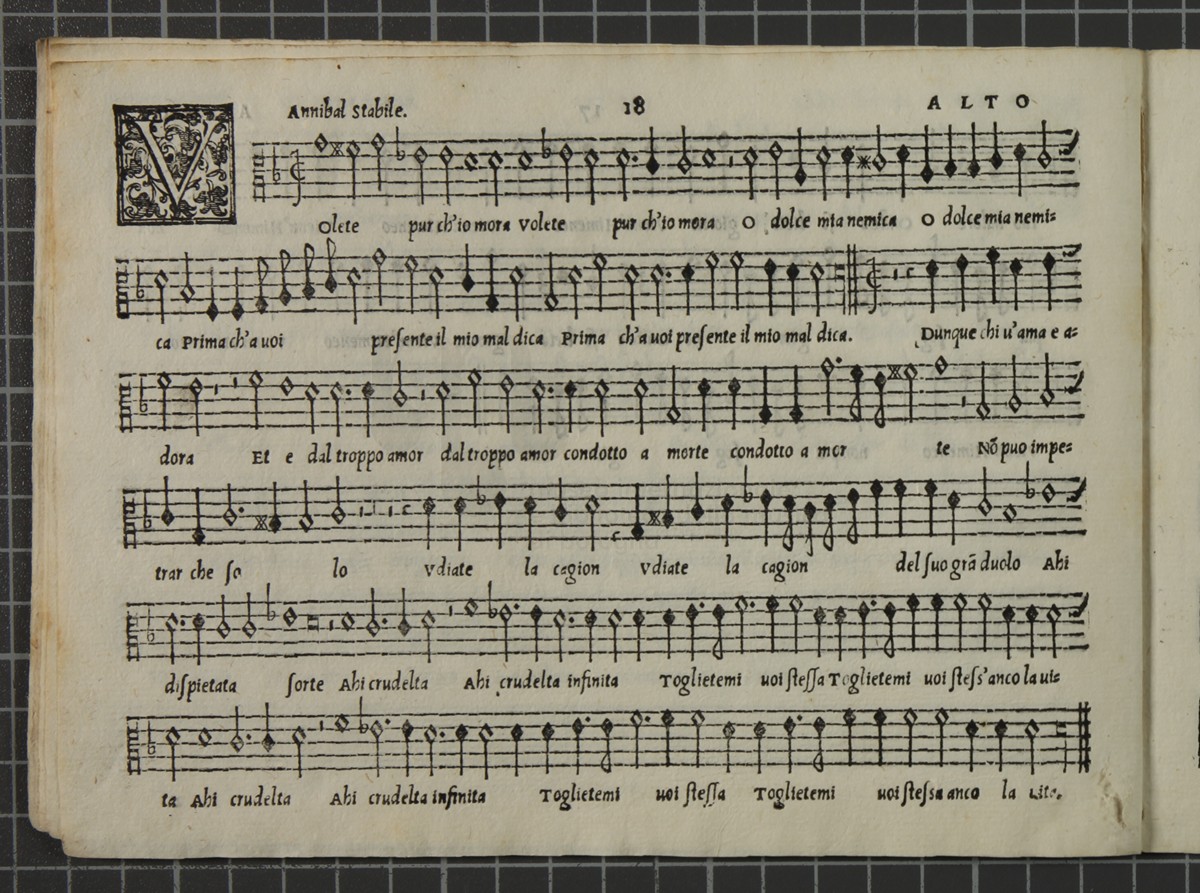 Annibal Stabile. 18 ALTO
VOlete pur ch'io mora Volete pur ch'io mora O dolce mia nemica O dolce mia nemi=
ca Prima ch'a uoi preſente il mio mal dica Prima ch'a uoi preſente il mio mal dica. Dunque chi u'ama e a-
dora Et e dal troppo amor dal troppo amor condotto a morte condotto a mor te Nõ puo impe=
trar che ſo lo vdiate la cagion vdiate la cagion del ſuo grã duolo Ahi
diſpietata ſorte Ahi crudelta Ahi crudelta infinita Toglietemi uoi ſteſſa Toglietemi uoi ſteſs'anco la ui=
ta Ahi crudelta Ahi crudelta infinita Toglietemi uoi ſteſſa Toglietemi uoi ſteſsa anco la uita.